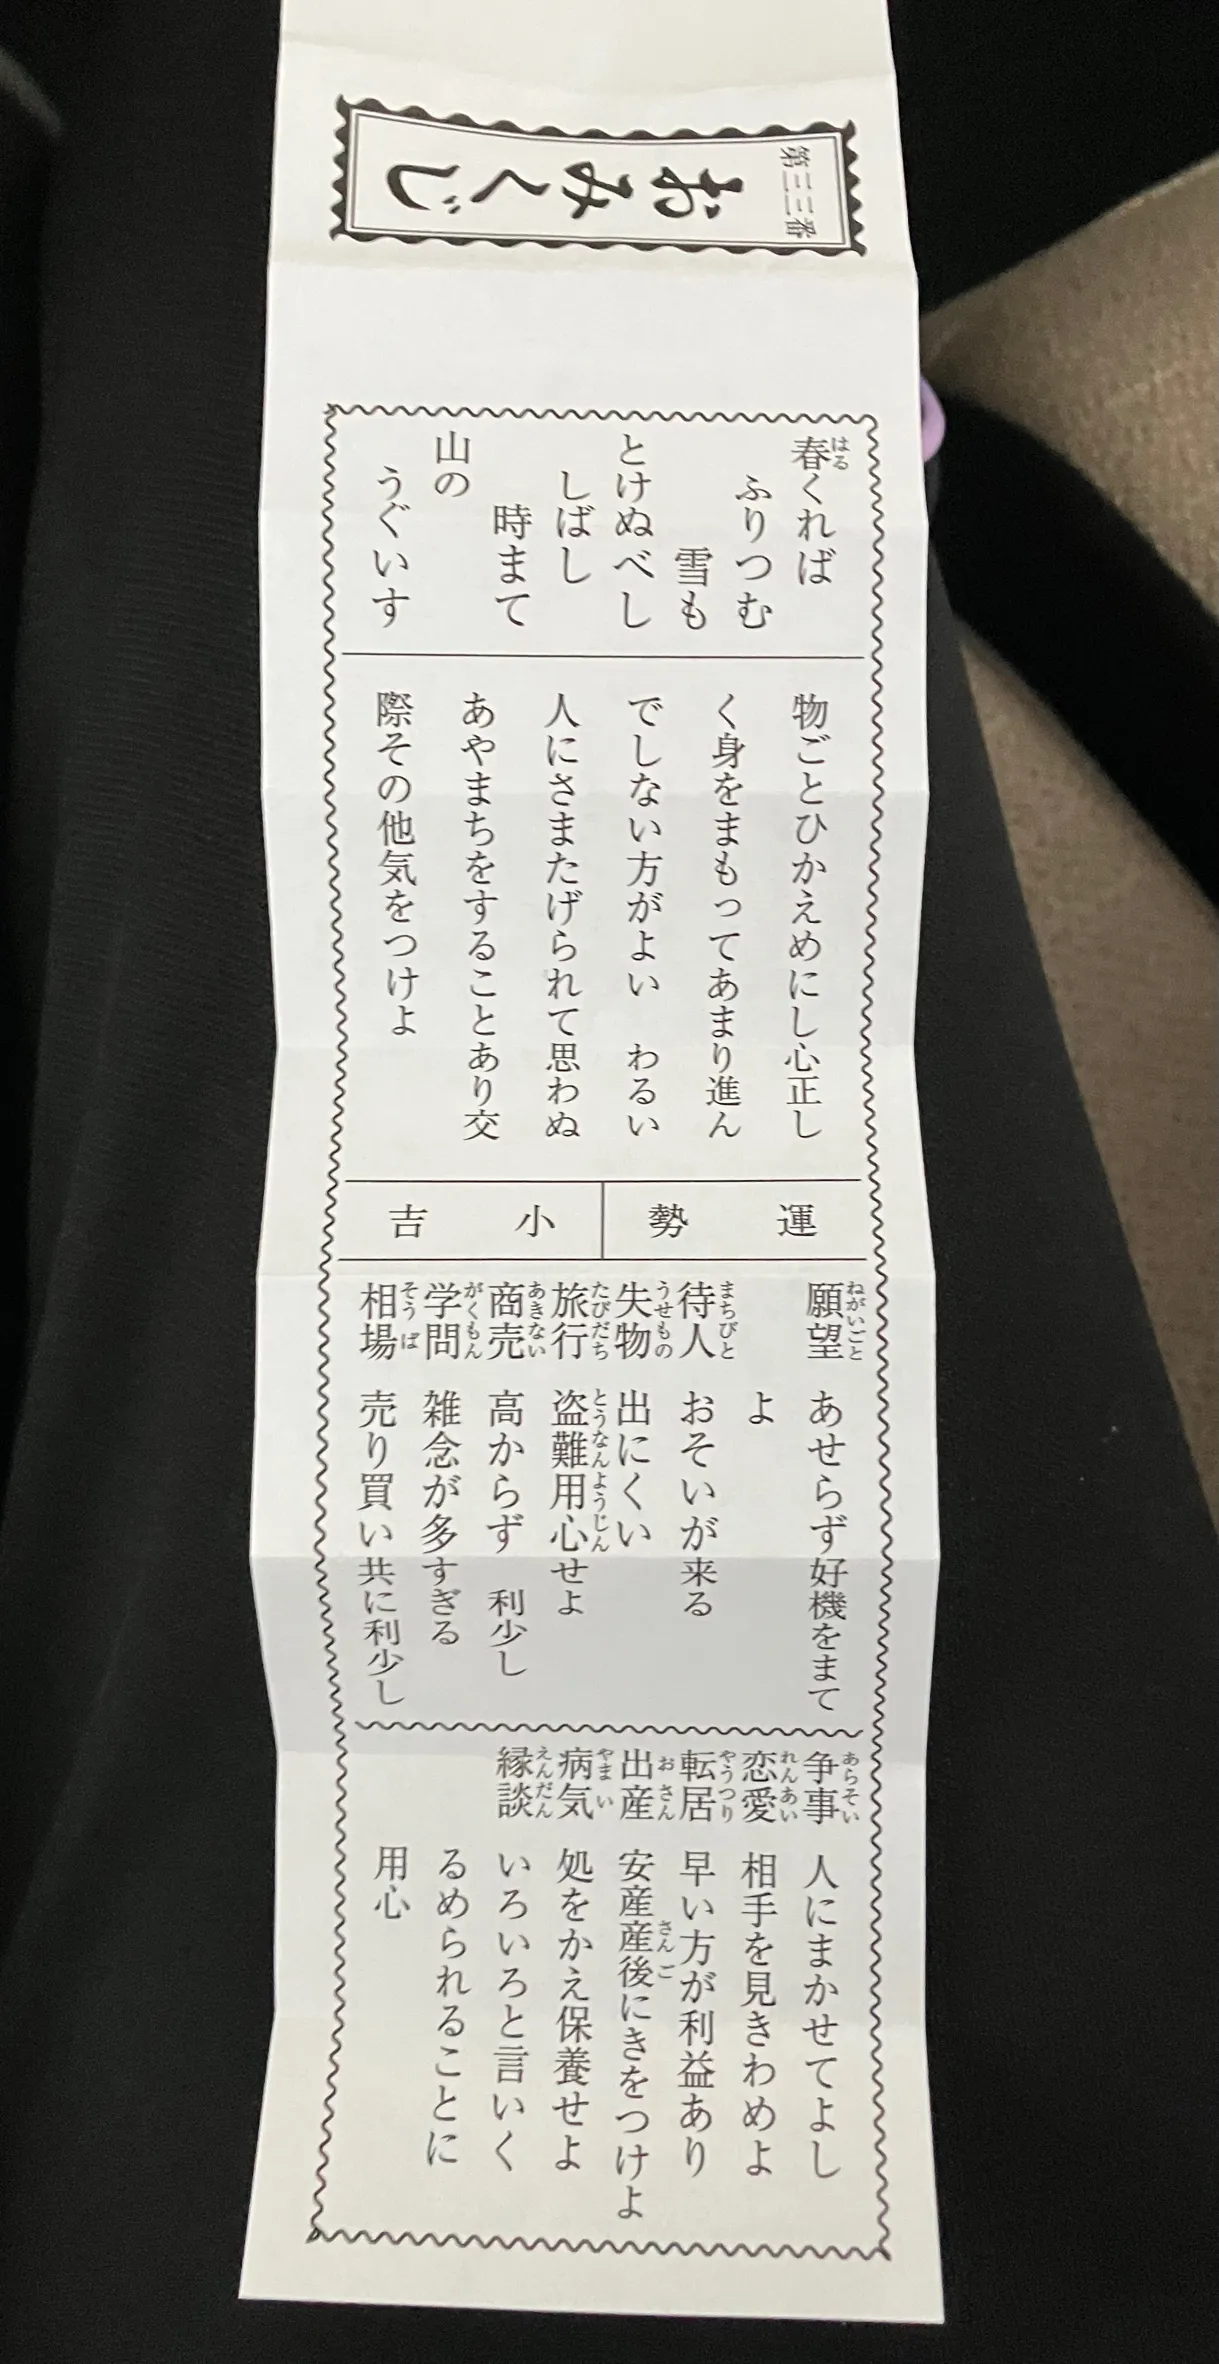 第三三番
おみくじ
春くれば
ふりつむ
雪も
とけぬべし
しばし
時まて
山の
うぐいす
物ごとひかえめにし心正し
く身をまもってあまり進ん
でしない方がよい　わるい
人にさまたげられて思わぬ
あやまちをすることあり交
際その他気をつけよ
運勢
小吉
願望　あせらず好機をまて
よ
待人　おそいが来る
失物　出にくい
旅行　盗難用心せよ
商売　高からず　利少し
学問　雑念が多すぎる
相場　売り買い共に利少し
争事　人にまかせてよし
恋愛　相手を見きわめよ
転居　早い方が利益あり
出産　安産産後にきをつけよ
病気　処をかえ保養せよ
縁談　いろいろと言いく
るめられることに
用心